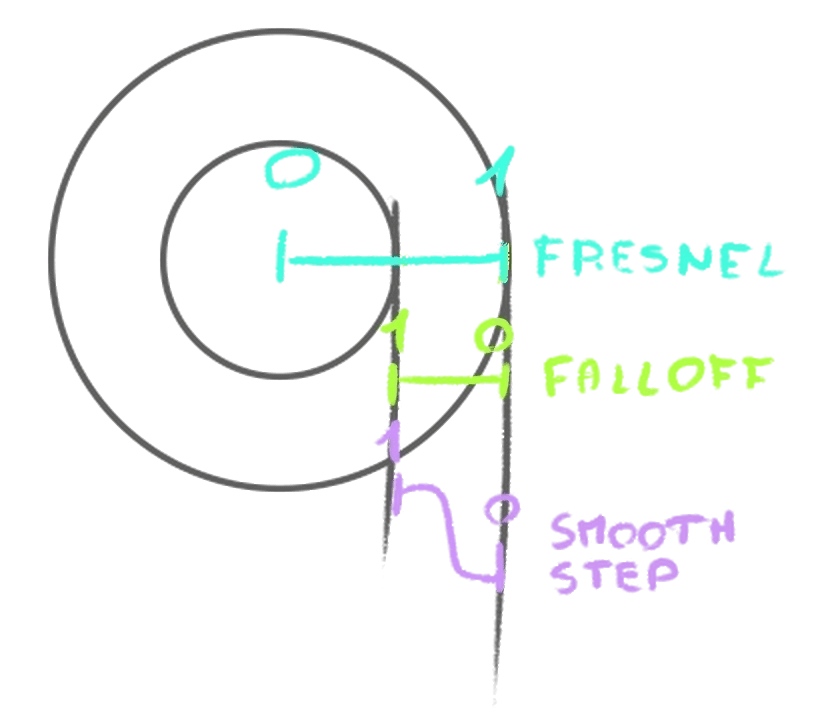 0 1
FRESNEL
1 0
FALLOFF
1 0
SMOOTH
STEP